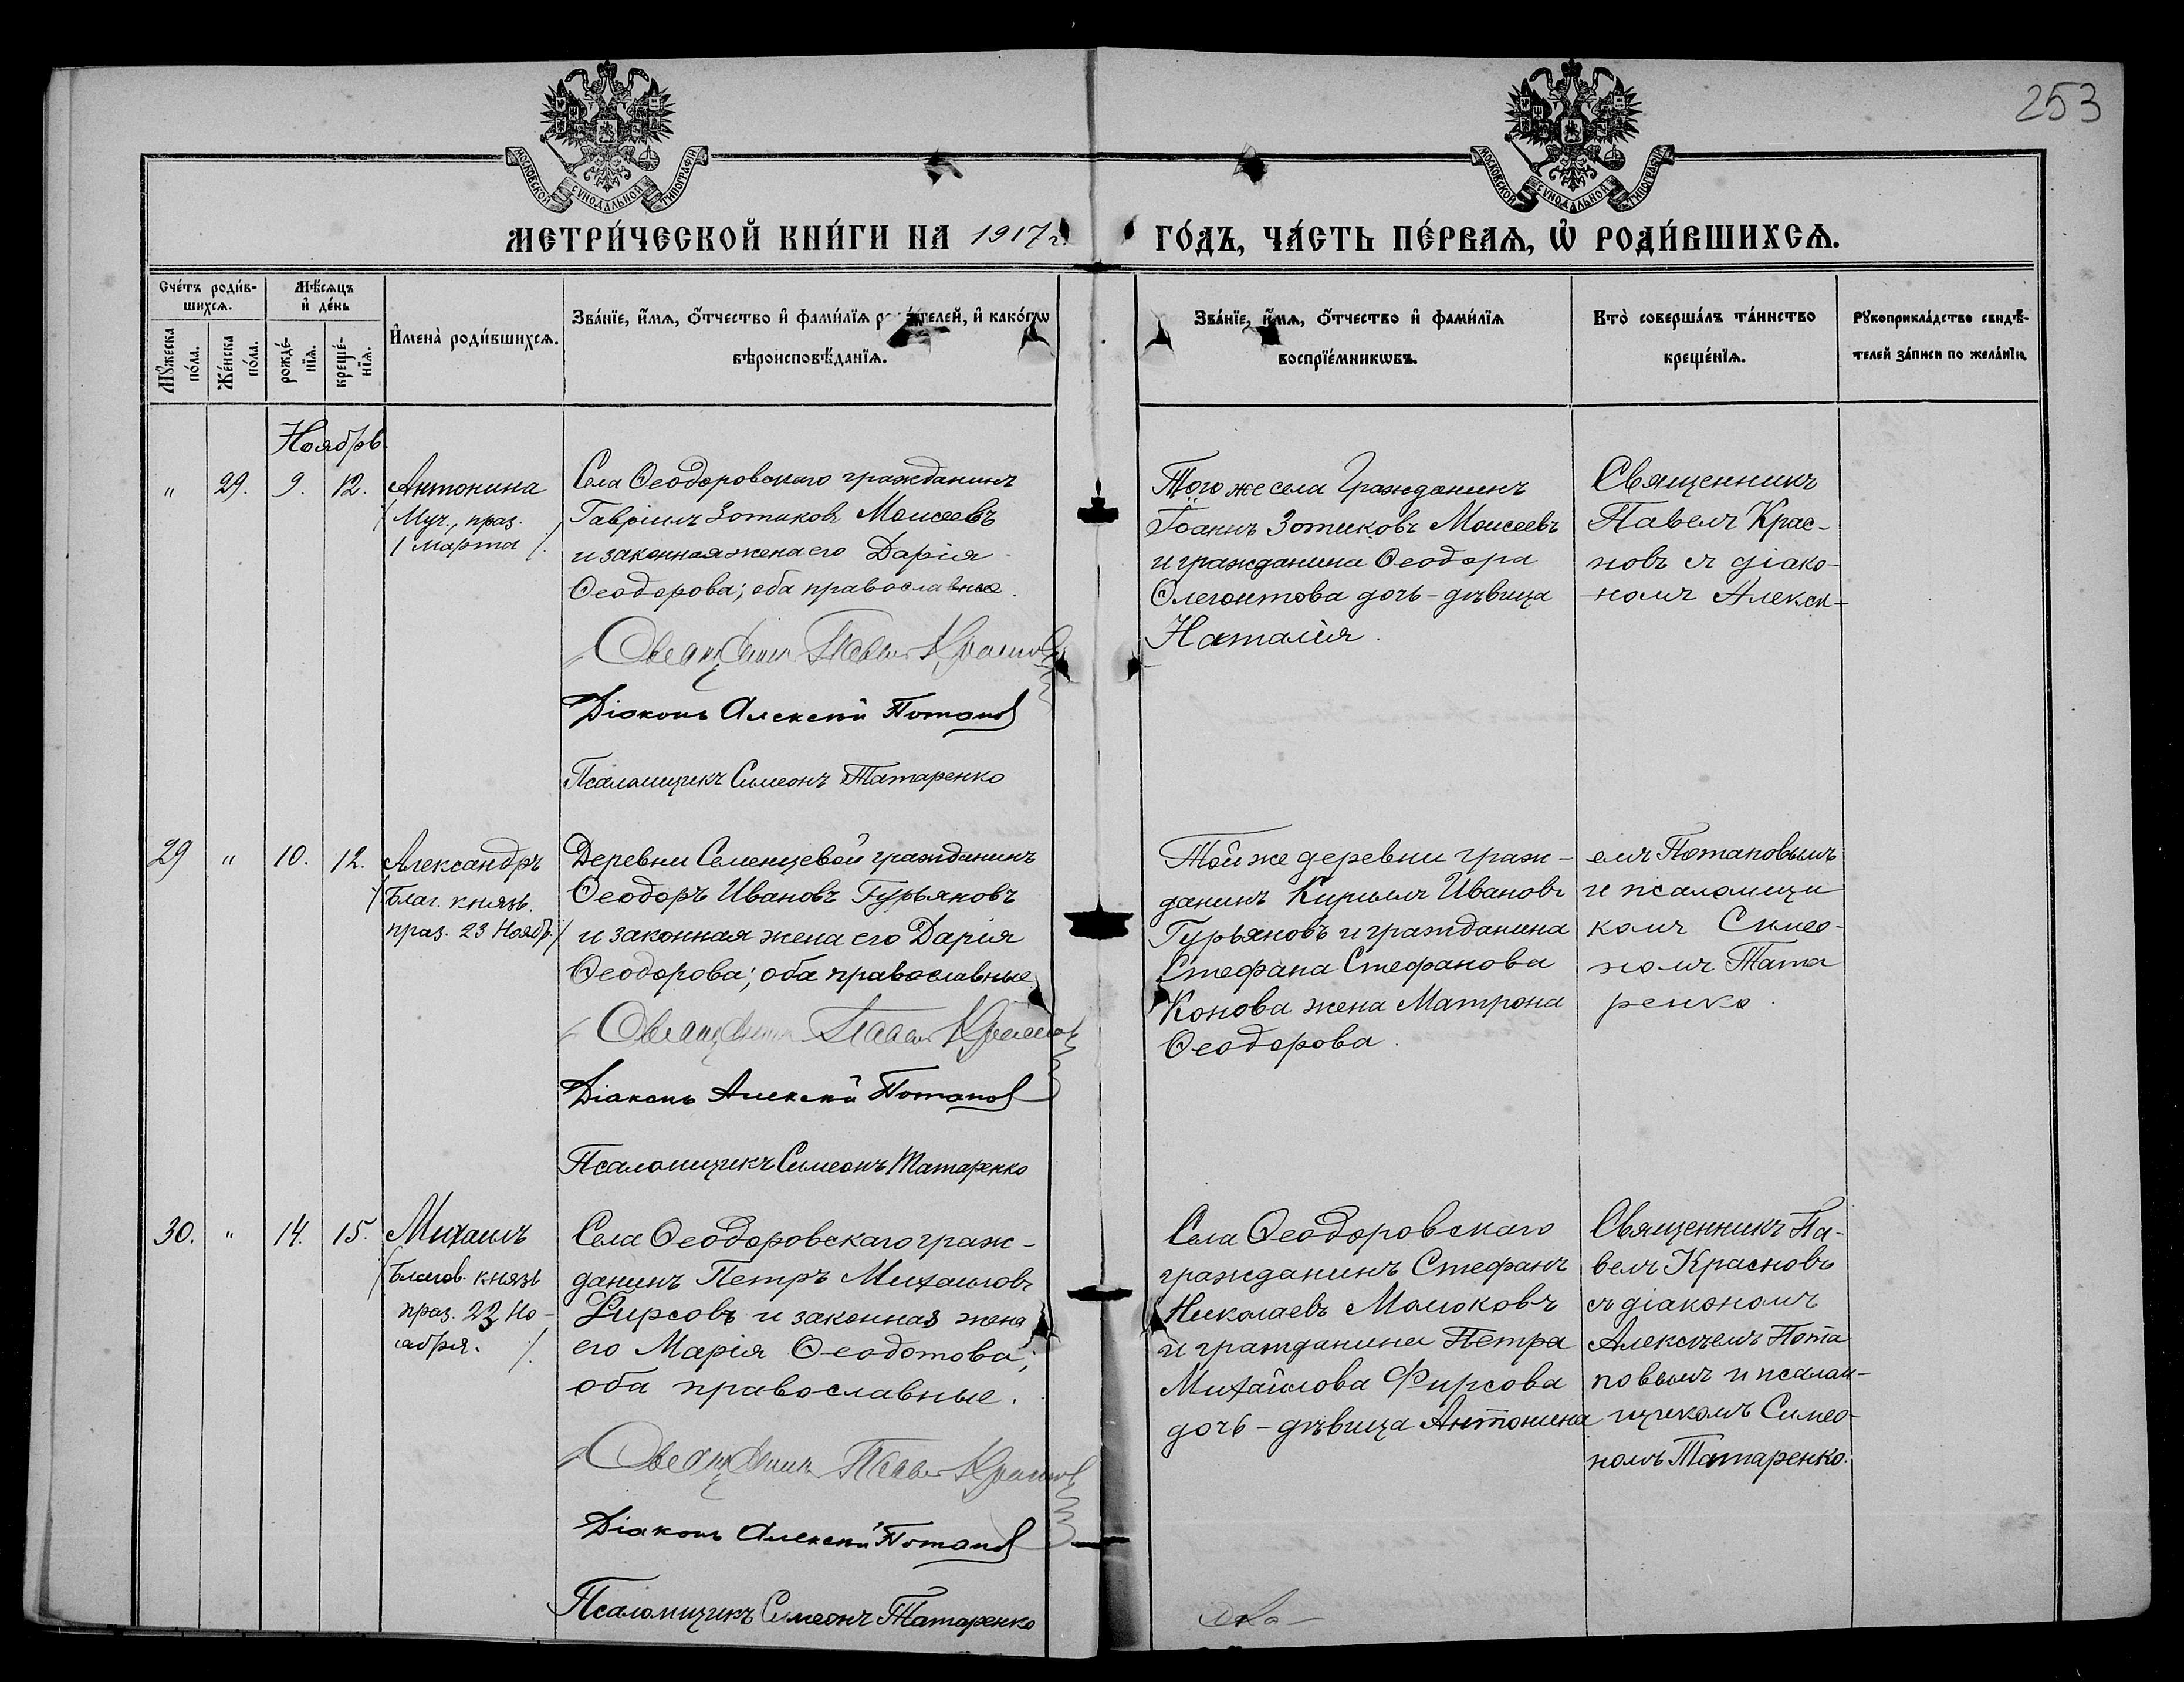 253
МОСКОВСКОЙ СѴНОДАЛЬНОЙ ТИПОГРАФІИ
МОСКОВСКОЙ СѴНОДАЛЬНОЙ ТИПОГРАФІИ
МЕТРИ́ЧЕСКОЙ КНИ́ГИ НА 1917 г. ГО́ДЪ, ЧА́СТЬ ПЕ́РВАѦ, Ѡ҆ РОДИ́ВШИХСѦ.
Сче́тъ роди́в-
шихсѧ.
Мѣ́сѧцъ
и҆ де́нь
Мꙋ́жеска
по́ла.
Же́нска
по́ла.
рожде́-
нїѧ.
креще́-
нїѧ.
И҆мена̀ роди́вшихсѧ.
Зва́нїе, и҆́мѧ, ѻ҆́тчество и҆ фами́лїѧ роди́телей, и҆ како́гѡ
вѣроисповѣ́данїѧ.
Зва́нїе, и҆́мѧ, ѻ҆́тчество и҆ фами́лїѧ
воспрїе́мникѡвъ.
Кто̀ соверша́лъ та́инство
креще́нїѧ.
Рꙋкоприкла́дство свидѣ́-
телей за́писи по жела́нїю.
Ноябрь.
" 29. 9. 12.
Антонина
/Муч., праз.
1 Марта/.
Села Ѳеодоровскаго гражданинъ
Гавріилъ Зотиковъ Моисеевъ
и законная жена его Дарія
Ѳеодорова; оба православные.
Священникъ Павелъ Красновъ
Діаконъ Алексѣй Потапов
Псаломщикъ Симеонъ Татаренко
Того же села Гражданинъ
Іоаннъ Зотиковъ Моисеевъ
и гражданина Ѳеодора
Ѳлегонтова дочь-дѣвица
Наталія.
Священникъ
Павелъ Крас-
новъ съ діако-
номъ Алексѣ-
29 " 10. 12.
Александръ
/Благ. князь.
праз. 23 Нояб./
Деревни Семенцевой гражданинъ
Ѳеодоръ Ивановъ Гурьяновъ
и законная жена его Дарія
Ѳеодорова; оба православные
Священникъ Павелъ Красновъ
Діаконъ Алексѣй Потапов
Псаломщикъ Симеонъ Татаренко
Той же деревни граж-
данинъ Кириллъ Ивановъ
Гурьяновъ и гражданина
Стефана Стефанова
Конова жена Матрона
Ѳеодорова.
емъ Потаповымъ
и псаломщи
комъ Симео-
номъ Тата
ренко.
30. " 14. 15.
Михаилъ
/Благов. князь
праз. 23 Но-
ября. /.
Села Ѳеодоровскаго граж-
данинъ Петръ Михаиловъ
Фирсовъ и законная жена
его Марія Ѳеодотова;
оба православные.
Священникъ Павелъ Красновъ
Діаконъ Алексѣй Потапов
Псаломщикъ Симеонъ Татаренко
Села Ѳеодоровскаго
гражданинъ Стефанъ
Николаевъ Молоковъ
и гражданина Петра
Михайлова Фирсова
дочь-дѣвица Антонина
Священникъ Па-
велъ Красновъ
съ діакономъ
Алексѣемъ Пота
повымъ и псалом-
щикомъ Симео-
номъ Татаренко.